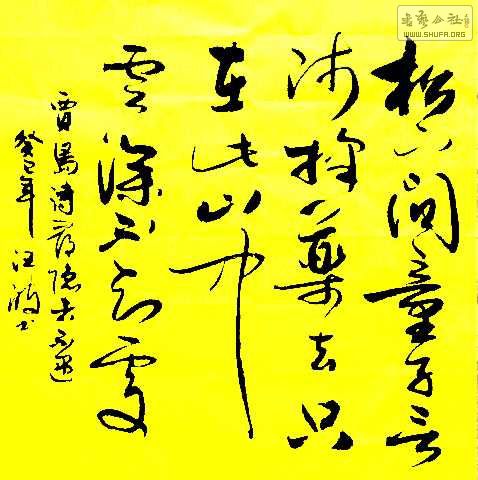 松下问童子言
师採药去只
在此山中
云深不知处
贾岛诗寻隐者不遇
癸巳年 汪波书
書藝公社
WWW.SHUFA.ORG